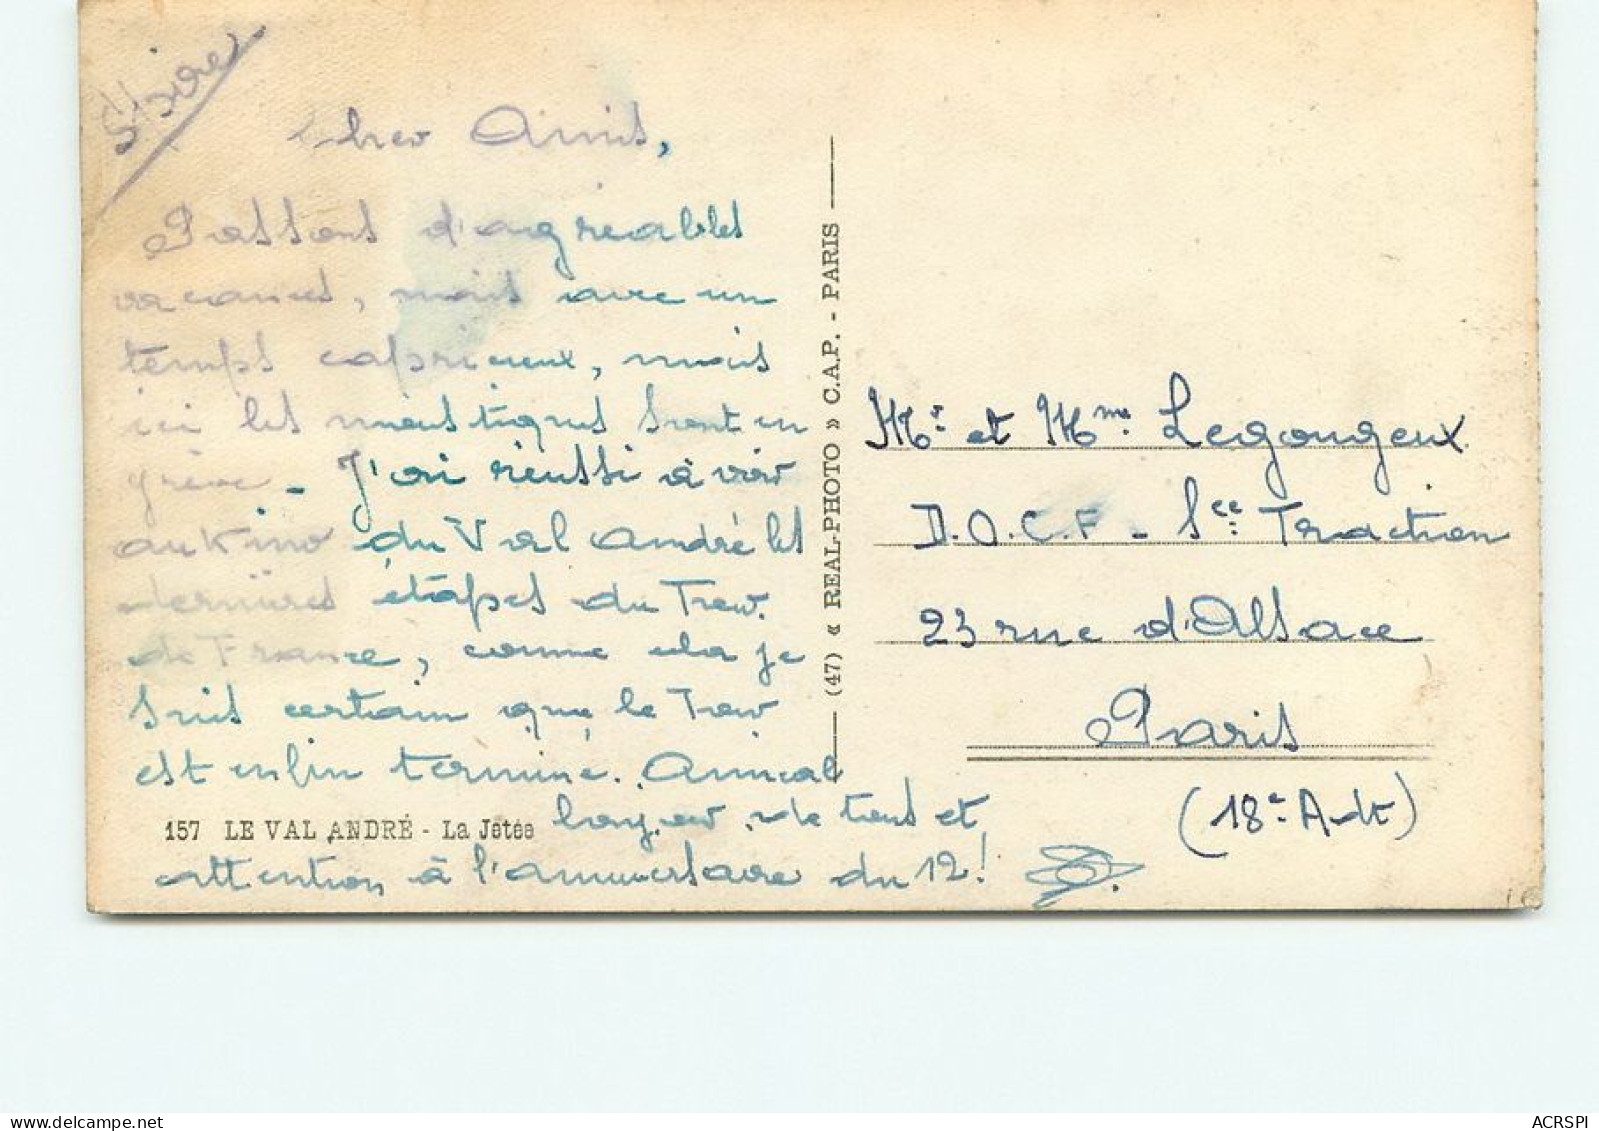 Cher Amis,
Passons d'agréables
vacances, mais avec un
temps capricieux, mais
ici les moustiques sont en
grève - J'ai réussi à voir
au Kino du Val André les
dernières étapes du Tour.
de France, comme cela je
suis certain que le Tour
est enfin terminé. Amical
bonjour de tous et
attention à l'anniversaire du 12!
157 LE VAL ANDRÉ - La Jetée
(47) « REAL-PHOTO » C.A.P. - PARIS
Mr. et Mme. Legougeux
D.O.C.F - Sce: Traction
23 rue d'Alsace
Paris
(18e Ardt)
ACRSPI